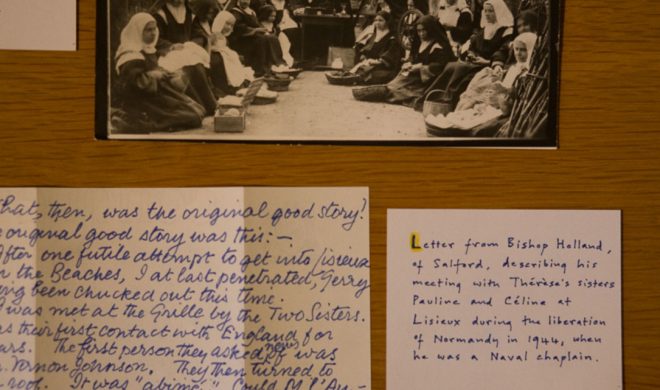 hat, then, was the original good story?
e original good story was this:—
After one futile attempt to get into Lisieux
the Beaches, I at last penetrated, Gerry
been chucked out this time.
I was met at the Grille by the Two Sisters.
as their first contact with England for
The first person they asked news of was
Vernon Johnson. They then turned to
roof. It was "abimé." Could
Letter from Bishop Holland,
of Salford, describing his
meeting with Thérèse's sisters
Pauline and Céline at
Lisieux during the liberation
of Normandy in 1944, when
he was a Naval chaplain.